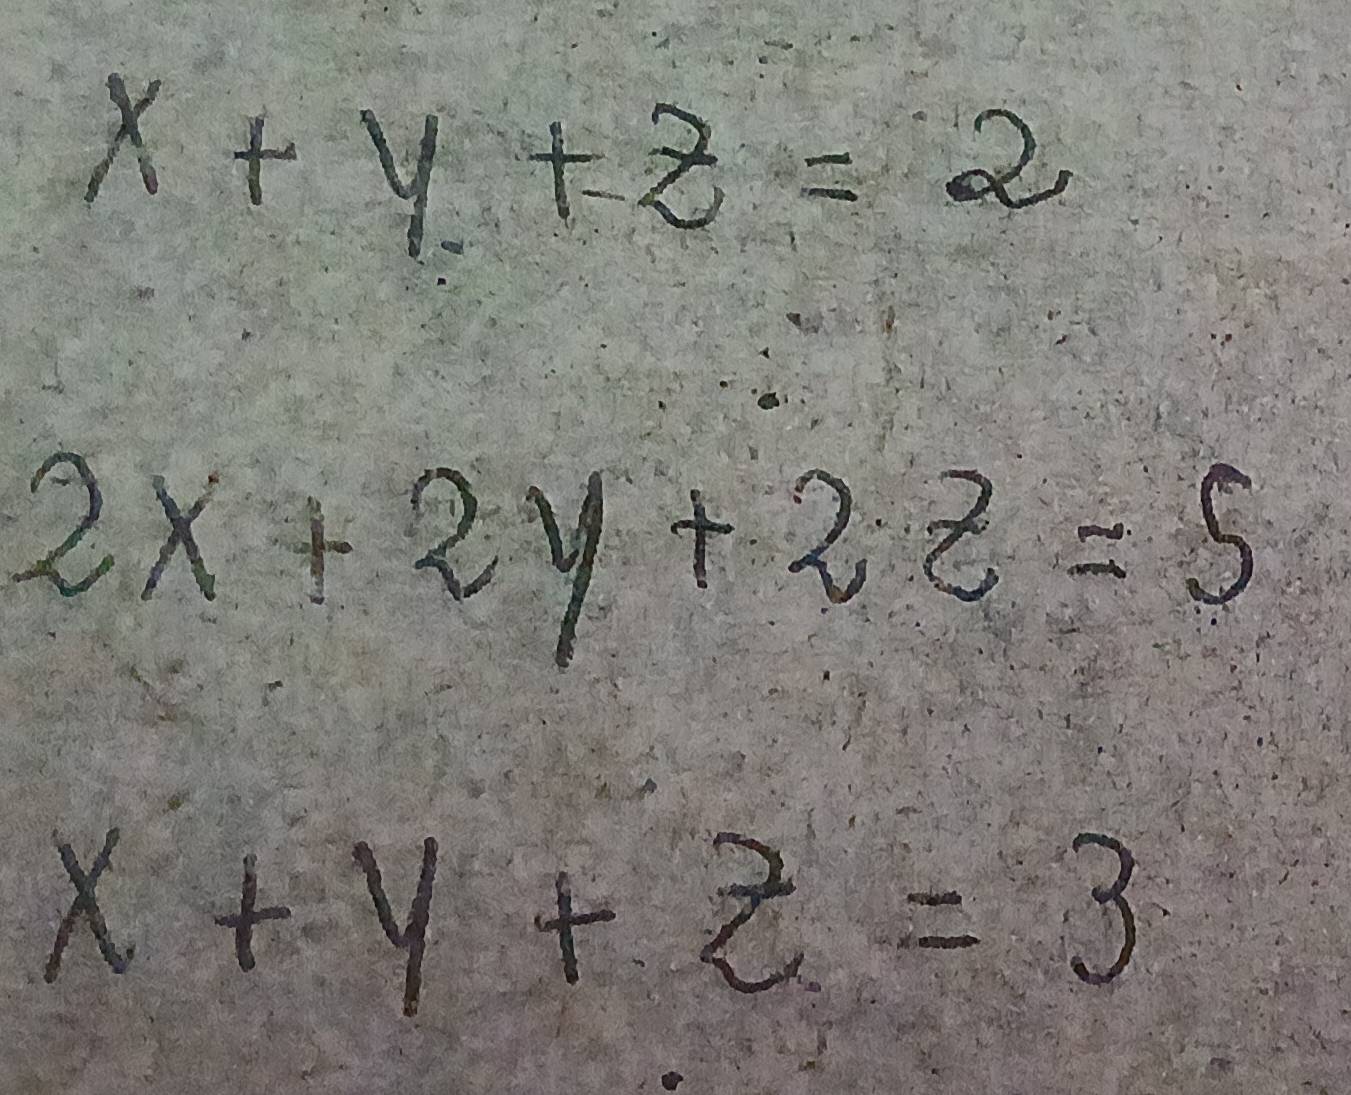 x + y + z = 2
2x + 2y + 2z = 5
x + y + z = 3